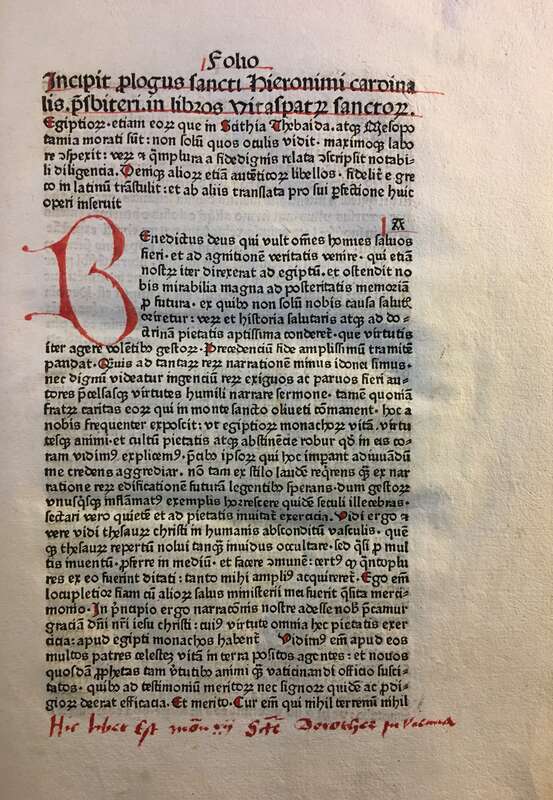 Folio
Incipit ꝓlogus sancti Hieronimi cardina
lis.ꝑsbiteri.in libros vitaspatꝝ sanctoꝝ.
Egiptioꝝ. etiam eoꝝ que in Scithia Thebaida. atqꝫ Mesopo
tamia morati sūt: non solū quos oculis vidit. maximoqꝫ labo
re ꝯspexit: veꝝ ⁊ ꝙ̄plura a fidedignis relata ꝯscripsit notabi
li diligencia. Deniqꝫ alioꝝ etiā autēticoꝝ libellos. fidelit̄ e gre
co in latinū trāstulit: et ab aliis translata pro sui ꝑfectione huic
operi inseruit
A
Benedictus deus qui vult om̄es homīes saluos
fieri. et ad agnitionem veritatis venire. qui etiā
nostꝝ iter direxerat ad egiptū. et ostendit no
bis mirabilia magna ad posteritatis memoriā
ꝓ futura. ex quibꝰ non solū nobis causa salutꝭ
oriretur: veꝝ et historia salutaris atqꝫ ad do⸗
ctrinā pietatis aptissima conderet᷑. que virtutis
iter agere volētibꝰ gestoꝝ. Precedenciū fide amplissimū tramitē
pandat. Quis ad tantaꝝ reꝝ narrationē minus idonei simus.
nec dignū videatur ingenciū reꝝ exiguos ac paruos fieri au⸗
ctores p̄celsasqꝫ virtutes humili narrare sermone. tamē quoniā
fratꝝ caritas eoꝝ qui in monte sancto oliueti cōmanent. hoc a
nobis frequenter exposcit: vt egiptioꝝ monachoꝝ vitā. virtu
tesqꝫ animi. et cultū pietatis atqꝫ abstinēcie robur qd̄ in eis co⸗
ram vidimꝰ explicemꝰ. p̄cibꝰ ipsoꝝ qui hoc imꝑant adiuuādū
me credens aggrediar. nō tam ex stilo laudē reqͥrens qͣꝫ ex nar
ratione reꝝ edificationē futurā legentibꝰ sperans. dum gestoꝝ
vnusqͥsqꝫ inflāmatꝰ exemplis horrescere quidē seculi illecebras.
sectari vero quietē et ad pietatis inuitat᷑ exercicia. Vidi ergo ⁊
vere vidi thesauꝝ christi in humanis absconditū vasculis. quē
qꝫ thesauꝝ repertū nolui tanqͣꝫ inuidus occultare. sed qͣsi ꝓ mul
tis inuentū. ꝓferre in mediū. et facere ꝯmunē: certꝰ ꝙ qͣntoplu
res ex eo fuerint ditati: tanto mihi ampliꝰ acquireret᷑. Ego em̄
locupletior fiam cū alioꝝ salus ministerii mei fuerit qͣsita merci⸗
monio. In p̄ncipio ergo narracōnis nostre adesse nobꝭ p̄camur
graciā dn̄i nr̄i iesu christi: cuiꝰ virtute omnia hec pietatis exer
cicia: apud egipti monachos habent᷑ Vidimꝰ em̄ apud eos
multos patres celestē vitā in terra positos agentes: et nouos
quosdā ꝓphetas tam v̄tutibꝰ animi qͣꝫ vaticinandi officio susci⸗
tatos. quibꝰ ad testimoniū meritoꝝ nec signoꝝ quidē ac ꝓdi⸗
gioꝝ deerat efficacia. Et merito. Cur em̄ qui nihil terrenū nihil
Hic liber Est Sctē Dorothee